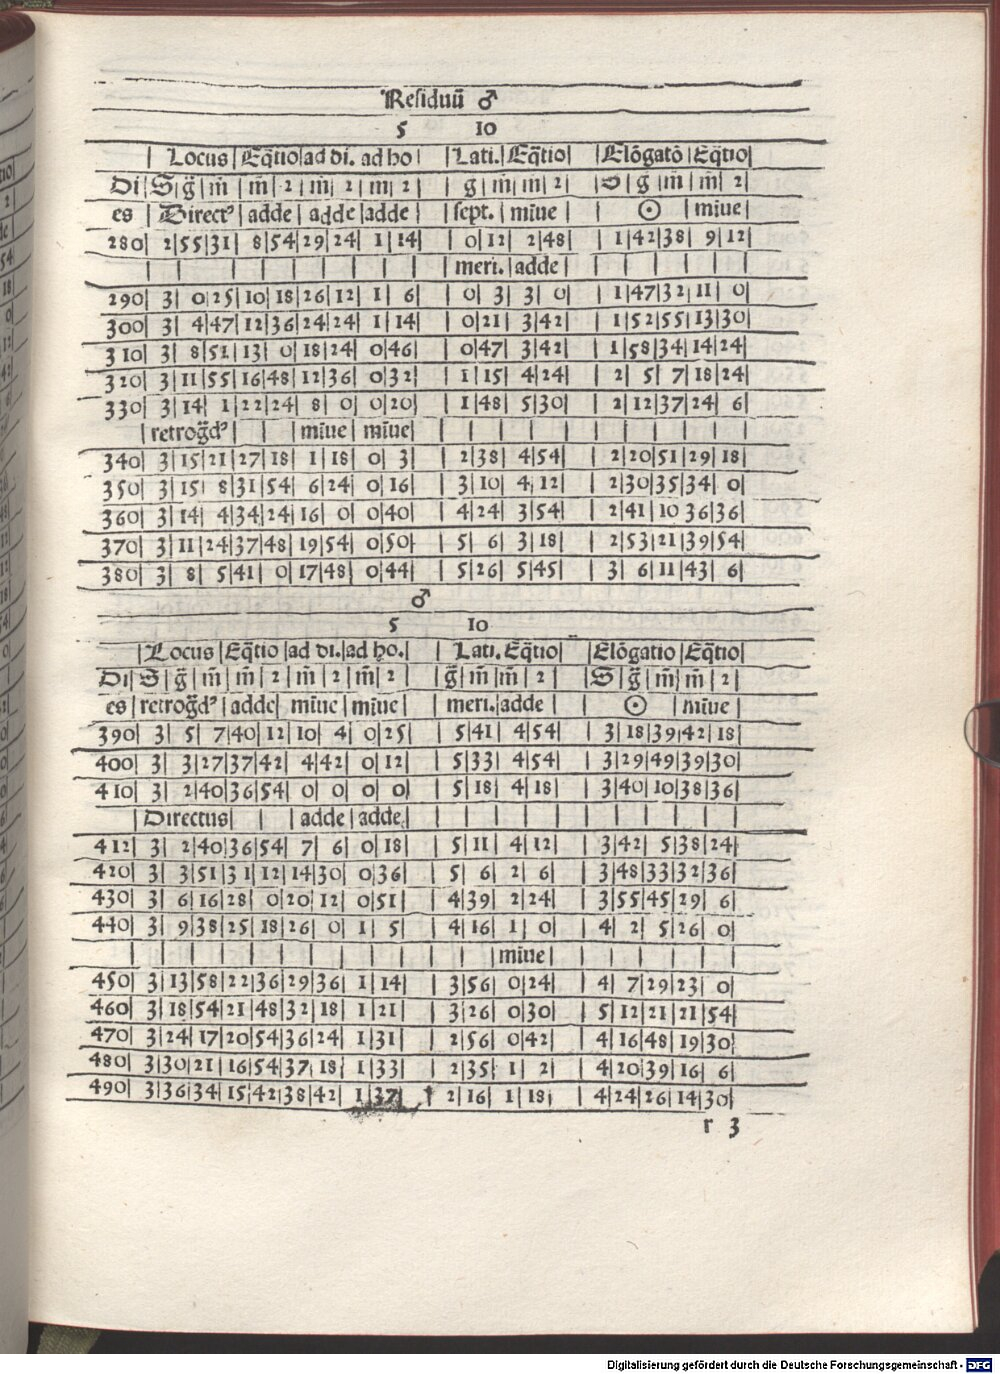 Residuũ ♂
5 10
| Locus | Eq̃tio | ad di. ad ho | | Lati. | Eq̃tio | | Elõgatõ | Eq̃tio |
Di | S | g̃ | m̃ | m̃ | 2 | m̃ | 2 | m | 2 | | g | m̃ | m | 2 | | S | g | m̃ | m̃ | 2 |
es | Direct⁹ | adde | adde | adde | | sept. | miñue | | ☉ | miñue |
280 | 2 | 55 | 31 | 8 | 54 | 29 | 24 | 1 | 14 | | 0 | 12 | 2 | 48 | | 1 | 42 | 38 | 9 | 12 |
| meri. | adde |
290 | 3 | 0 | 25 | 10 | 18 | 26 | 12 | 1 | 6 | | 0 | 3 | 3 | 0 | | 1 | 47 | 32 | 11 | 0 |
300 | 3 | 4 | 47 | 12 | 36 | 24 | 24 | 1 | 14 | | 0 | 21 | 3 | 42 | | 1 | 52 | 55 | 13 | 30 |
310 | 3 | 8 | 51 | 13 | 0 | 18 | 24 | 0 | 46 | | 0 | 47 | 3 | 42 | | 1 | 58 | 34 | 14 | 24 |
320 | 3 | 11 | 55 | 16 | 48 | 12 | 36 | 0 | 32 | | 1 | 15 | 4 | 24 | | 2 | 5 | 7 | 18 | 24 |
330 | 3 | 14 | 1 | 22 | 24 | 8 | 0 | 0 | 20 | | 1 | 48 | 5 | 30 | | 2 | 12 | 37 | 24 | 6 |
| retrog̃d⁹ | | | miñue | miñue |
340 | 3 | 15 | 21 | 27 | 18 | 1 | 18 | 0 | 3 | | 2 | 38 | 4 | 54 | | 2 | 20 | 51 | 29 | 18 |
350 | 3 | 15 | 8 | 31 | 54 | 6 | 24 | 0 | 16 | | 3 | 10 | 4 | 12 | | 2 | 30 | 35 | 34 | 0 |
360 | 3 | 14 | 4 | 34 | 24 | 16 | 0 | 0 | 40 | | 4 | 24 | 3 | 54 | | 2 | 41 | 10 36 | 36 |
370 | 3 | 11 | 24 | 37 | 48 | 19 | 54 | 0 | 50 | | 5 | 6 | 3 | 18 | | 2 | 53 | 21 | 39 | 54 |
380 | 3 | 8 | 5 | 41 | 0 | 17 | 48 | 0 | 44 | | 5 | 26 | 5 | 45 | | 3 | 6 | 11 | 43 | 6 |
♂
5 10
| Locus | Eq̃tio | ad di. | ad ho. | | Lati. Eq̃tio | | Elõgatio | Eq̃tio |
Di | S | g̃ | m̃ | m̃ | 2 | m̃ | 2 | m̃ | 2 | | g̃ | m̃ | m̃ | 2 | | S | g̃ | m̃ | m̃ | 2 |
es | retrog̃d⁹ | adde | miñue | miñue | | meri. | adde | | ☉ | miñue |
390 | 3 | 5 | 7 | 40 | 12 | 10 | 4 | 0 | 25 | | 5 | 41 | 4 | 54 | | 3 | 18 | 39 | 42 | 18 |
400 | 3 | 3 | 27 | 37 | 42 | 4 | 42 | 0 | 12 | | 5 | 33 | 4 | 54 | | 3 | 29 | 49 | 39 | 30 |
410 | 3 | 2 | 40 | 36 | 54 | 0 | 0 | 0 | 0 | | 5 | 18 | 4 | 18 | | 3 | 40 | 10 | 38 | 36 |
| Directus | | | adde | adde |
412 | 3 | 2 | 40 | 36 | 54 | 7 | 6 | 0 | 18 | | 5 | 11 | 4 | 12 | | 3 | 42 | 5 | 38 | 24 |
420 | 3 | 3 | 51 | 31 | 12 | 14 | 30 | 0 | 36 | | 5 | 6 | 2 | 6 | | 3 | 48 | 33 | 32 | 36 |
430 | 3 | 6 | 16 | 28 | 0 | 20 | 12 | 0 | 51 | | 4 | 39 | 2 | 24 | | 3 | 55 | 45 | 29 | 6 |
440 | 3 | 9 | 38 | 25 | 18 | 26 | 0 | 1 | 5 | | 4 | 16 | 1 | 0 | | 4 | 2 | 5 | 26 | 0 |
| miñue |
450 | 3 | 13 | 58 | 22 | 36 | 29 | 36 | 1 | 14 | | 3 | 56 | 0 | 24 | | 4 | 7 | 29 | 23 | 0 |
460 | 3 | 18 | 54 | 21 | 48 | 32 | 18 | 1 | 21 | | 3 | 26 | 0 | 30 | | 5 | 12 | 21 | 21 | 54 |
470 | 3 | 24 | 17 | 20 | 54 | 36 | 24 | 1 | 31 | | 2 | 56 | 0 | 42 | | 4 | 16 | 48 | 19 | 30 |
480 | 3 | 30 | 21 | 16 | 54 | 37 | 18 | 1 | 33 | | 2 | 35 | 1 | 2 | | 4 | 20 | 39 | 16 | 6 |
490 | 3 | 36 | 34 | 15 | 42 | 38 | 42 | 1 | 37 | | 2 | 16 | 1 | 18 | | 4 | 24 | 26 | 14 | 30 |
r 3
Digitalisierung gefördert durch die Deutsche Forschungsgemeinschaft - DFG